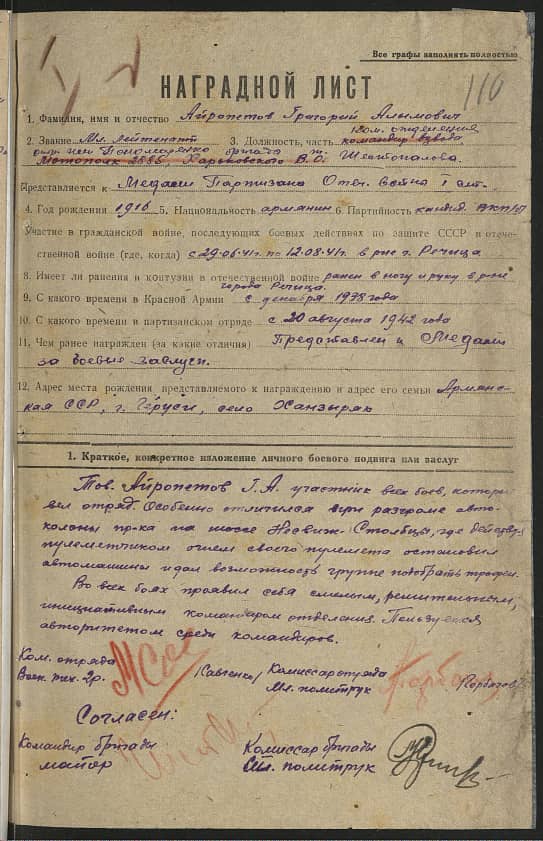 Все графы заполнять полностью
НАГРАДНОЙ ЛИСТ
110
1. Фамилия, имя и отчество Айропетов Григорий Алымович
ком. отделения
2. Звание Мл. лейтенант 3. Должность, часть командир взвода
Пономаренко бригада т.
2885, Харьковского В.О. Шестопалова.
Представляется к Медали Партизана Отеч. война I ст.
4. Год рождения 1916 5. Национальность армянин 6. Партийность канд. ВКП/б
Участие в гражданской войне, последующих боевых действиях по защите СССР и отече-
ственной войне (где, когда) с 29.06.41г по 12.08.41г в р-не г. Речица
8. Имеет ли ранения и контузии в отечественной войне ранен в ногу и руку в р-не
города Речица.
9. С какого времени в Красной Армии с декабря 1938 года
10. С какого времени в партизанском отряде с 20 августа 1942 года
11. Чем ранее награжден (за какие отличия) Представлен к Медали
за боевые заслуги.
12. Адрес места рождения представляемого к награждению и адрес его семьи Армянс-
кая ССР, г. Геруси, село Ханзыряк
1. Краткое, конкретное изложение личного боевого подвига или заслуг
Тов. Айропетов Г.А. участник всех боев, которы
вел отряд. Особенно отличился при разгроме авто-
колоны пр-ка на шоссе Несвиж-Столбцы, где действуя
пулеметчиком огнем своего пулемета остановил
автомашины и дал возможность группе подобрать трофеи.
Во всех боях проявил себя смелым, решительным,
инициативным командиром отделения. Пользуется
авторитетом среди командиров.
Ком. отряда /Савченко/ Комиссар отряда /Горбачов/
Воен. тех. 2р. Мл. политрук
Согласен:
Командир бригады Комиссар бригады
майор политрук